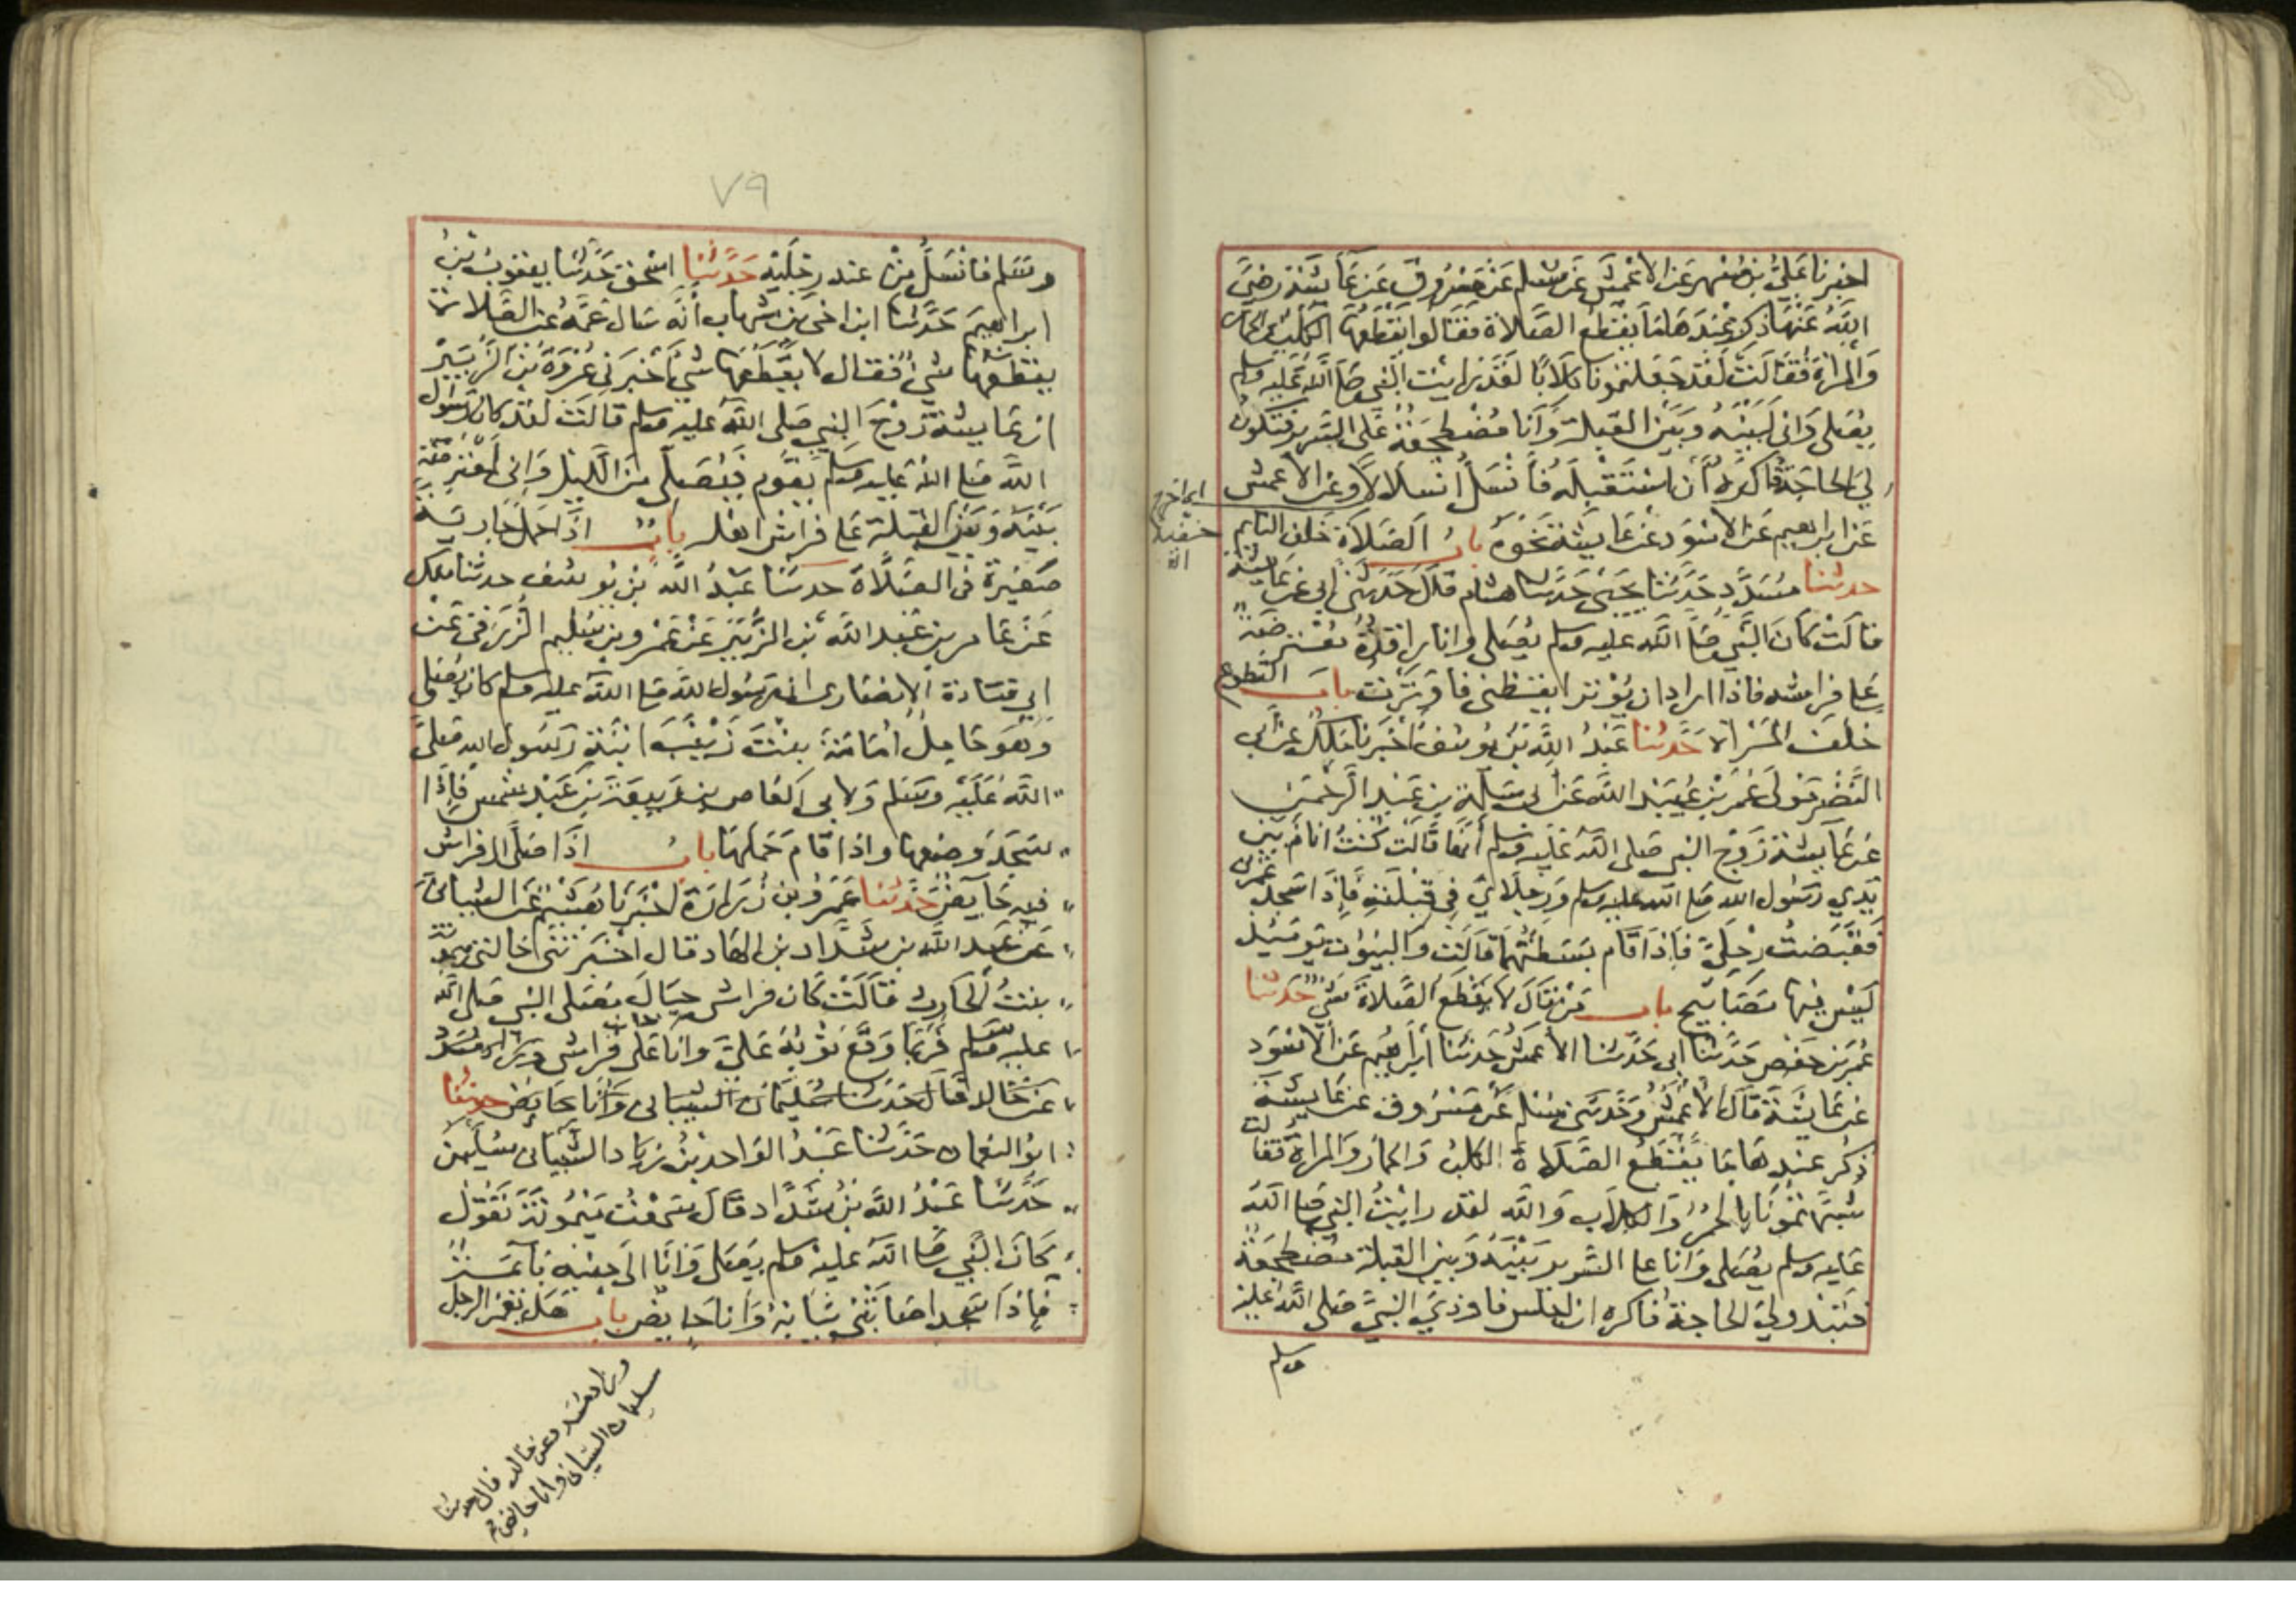 اخبرنا علي بن مسهر عن الاعمش عن مسلم عن مسروق عن عائشة رضي
الله عنها ذكر عندها ما يقطع الصلاة فقالوا يقطعها الكلب والحمار
والمراة فقالت لقد جعلتمونا كلابا لقد رايت النبي صلى الله عليه وسلم
يصلى وانى لبينه وبين القبلة وانا مضطجعة على السرير فتكون
لي الحاجة فاكره ان استقبله فانسل انسلالا وعن الاعمش
عن ابراهيم عن الاسود عن عايشة نحوه باب الصلاة خلف النايم
حدثنا مسدد حدثنا يحيى حدثنا هشام قال حدثني ابي عن عايشة
قالت كان النبي صلى الله عليه وسلم يصلى وانا راقدة معترضة
على فراشه فاذا اراد ان يوتر ايقظنى فاوترت باب التطوع
خلف المراة حدثنا عبد الله بن يوسف اخبرنا ملك عن ابي
النضر مولى عمر بن عبيد الله عن ابى سلمة بن عبد الرحمن
عن عايشة زوج النبي صلى الله عليه وسلم انها قالت كنت انام بين
يدي رسول الله صلى الله عليه وسلم ورجلاي في قبلته فاذا سجد غمزني
فقبضت رجلي فاذا قام بسطتهما قالت والبيوت يوميذ
ليس فيها مصابيح باب من قال لا يقطع الصلاة شي حدثنا
عمر بن حفص حدثنا ابى حدثنا الاعمش حدثنا ابراهيم عن الاسود
عن عايشة قال الاعمش وحدثنى مسلم عن مسروق عن عايشة
ذكر عندها ما يقطع الصلاة الكلب والحمار والمراة فقالت
شبهتمونا بالحمر والكلاب والله لقد رايت النبي صلى الله
عليه وسلم يصلى وانا على السرير بينه وبين القبلة مضطجعة
فتبدو لي الحاجة فاكره ان اجلس فاوذي النبي صلى الله عليه
وسلم
٧٩
وسلم فانسل من عند رجليه حدثنا اسحق حدثنا يعقوب بن
ابراهيم حدثنا ابن اخى بن شهاب انه سال عمه عن الصلاة
يقطعها شي فقال لا يقطعها شي اخبرنى عروة بن الزبير
ان عايشة زوج النبي صلى الله عليه وسلم قالت لقد كان رسول
الله صلى الله عليه وسلم يقوم فيصلى من الليل وانى لمعترضة
بينه وبين القبلة على فراش اهله باب اذا حمل جارية
صغيرة فى الصلاة حدثنا عبد الله بن يوسف حدثنا ملك
عن عامر بن عبد الله بن الزبير عن عمرو بن سليم الزرقى عن
ابي قتادة الانصارى ان رسول الله صلى الله عليه وسلم كان يصلى
وهو حامل امامة بنت زينب ابنة رسول الله صلى
الله عليه وسلم ولابى العاص بن ربيعة بن عبد شمس فاذا
سجد وضعها واذا قام حملها باب اذا صلى الى فراش
فيه حايض حدثنا عمرو بن زرارة اخبرنا هشيم عن الشيبانى
عن عبد الله بن شداد بن الهاد قال اخبرتنى خالتى ميمونة
بنت الحارث قالت كان فراشى حيال مصلى النبى صلى الله
عليه وسلم فربما وقع ثوبه علي وانا على فراشى وزاد مسدد
عن خالد قال حدثنا سليمان الشيبانى وانا حايض حدثنا
ابو النعمان حدثنا عبد الواحد بن زياد الشيبانى سليمن
حدثنا عبد الله بن شداد قال سمعت ميمونة تقول
كان النبي صلى الله عليه وسلم يصلى وانا الى جنبه نايمة
فاذا سجد اصابنى ثيابه وانا حايض باب هل يغمز الرجل
وزاد مسدد عن خالد قال حدثنا
سليمان الشيبانى وانا حايض